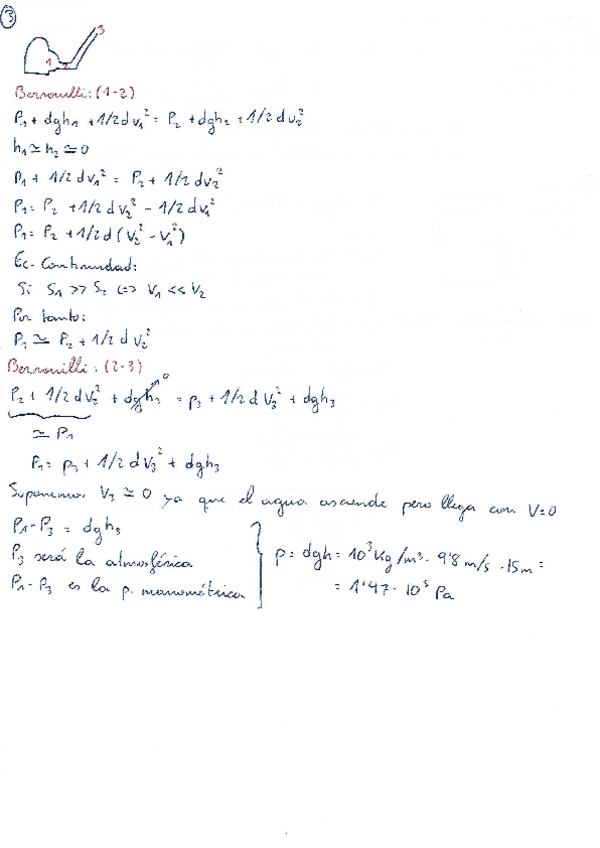 ③
1 2 3
Bernouilli: (1-2)
P₁ + dgh₁ + 1/2 d v₁² = P₂ + dgh₂ + 1/2 d v₂²
h₁ ≃ h₂ ≃ 0
P₁ + 1/2 d v₁² = P₂ + 1/2 d v₂²
P₁ = P₂ + 1/2 d v₂² - 1/2 d v₁²
P₁ = P₂ + 1/2 d (v₂² - v₁²)
Ec. Continuidad:
Si S₁ >> S₂ <=> v₁ << v₂
Por tanto:
P₁ ≃ P₂ + 1/2 d v₂²
Bernouilli: (2-3)
P₂ + 1/2 d v₂² + dgh₂ 0 = p₃ + 1/2 d v₃² + dgh₃
≃ P₁
P₁ = p₃ + 1/2 d v₃² + dgh₃
Suponemos v₃ ≃ 0 ya que el agua asciende pero llega con V=0
P₁-P₃ = dgh₃
P₃ será la atmosférica
P₁-P₃ es la p. manométrica
p = dgh = 10³ Kg/m³ · 9'8 m/s · 15m =
= 1'47 · 10⁵ Pa